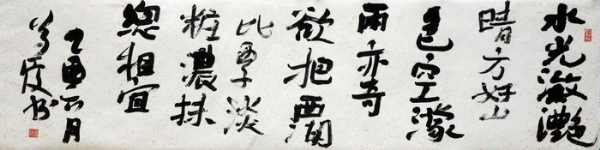 水光瀲灧
晴方好山
色空濛
雨亦奇
欲把西湖
比西子淡
粧濃抹
總相宜
酉六月
书